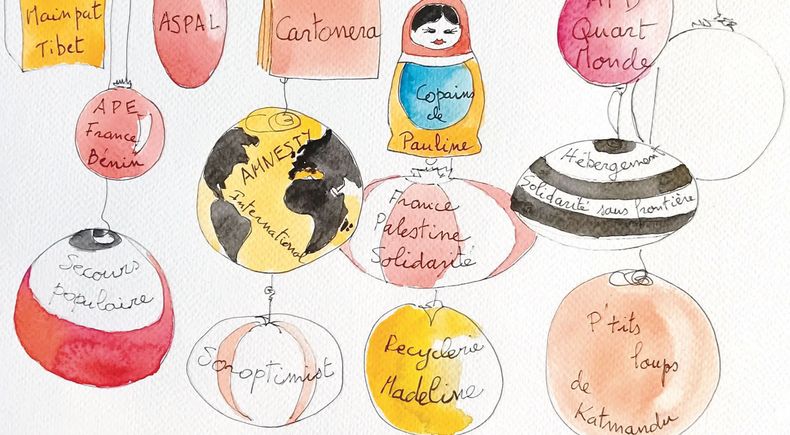 Mainpat
Tibet
ASPAL
Cartonera
ATD
Quart
Monde
APE
France
Bénin
AMNESTY
International
Copains
de
Pauline
Hébergement
Solidarité sans frontière
France
Palestine
Solidarité
Secours
populaire
Soroptimist
Recyclerie
Madeline
P'tits
loups
de
Katmandu